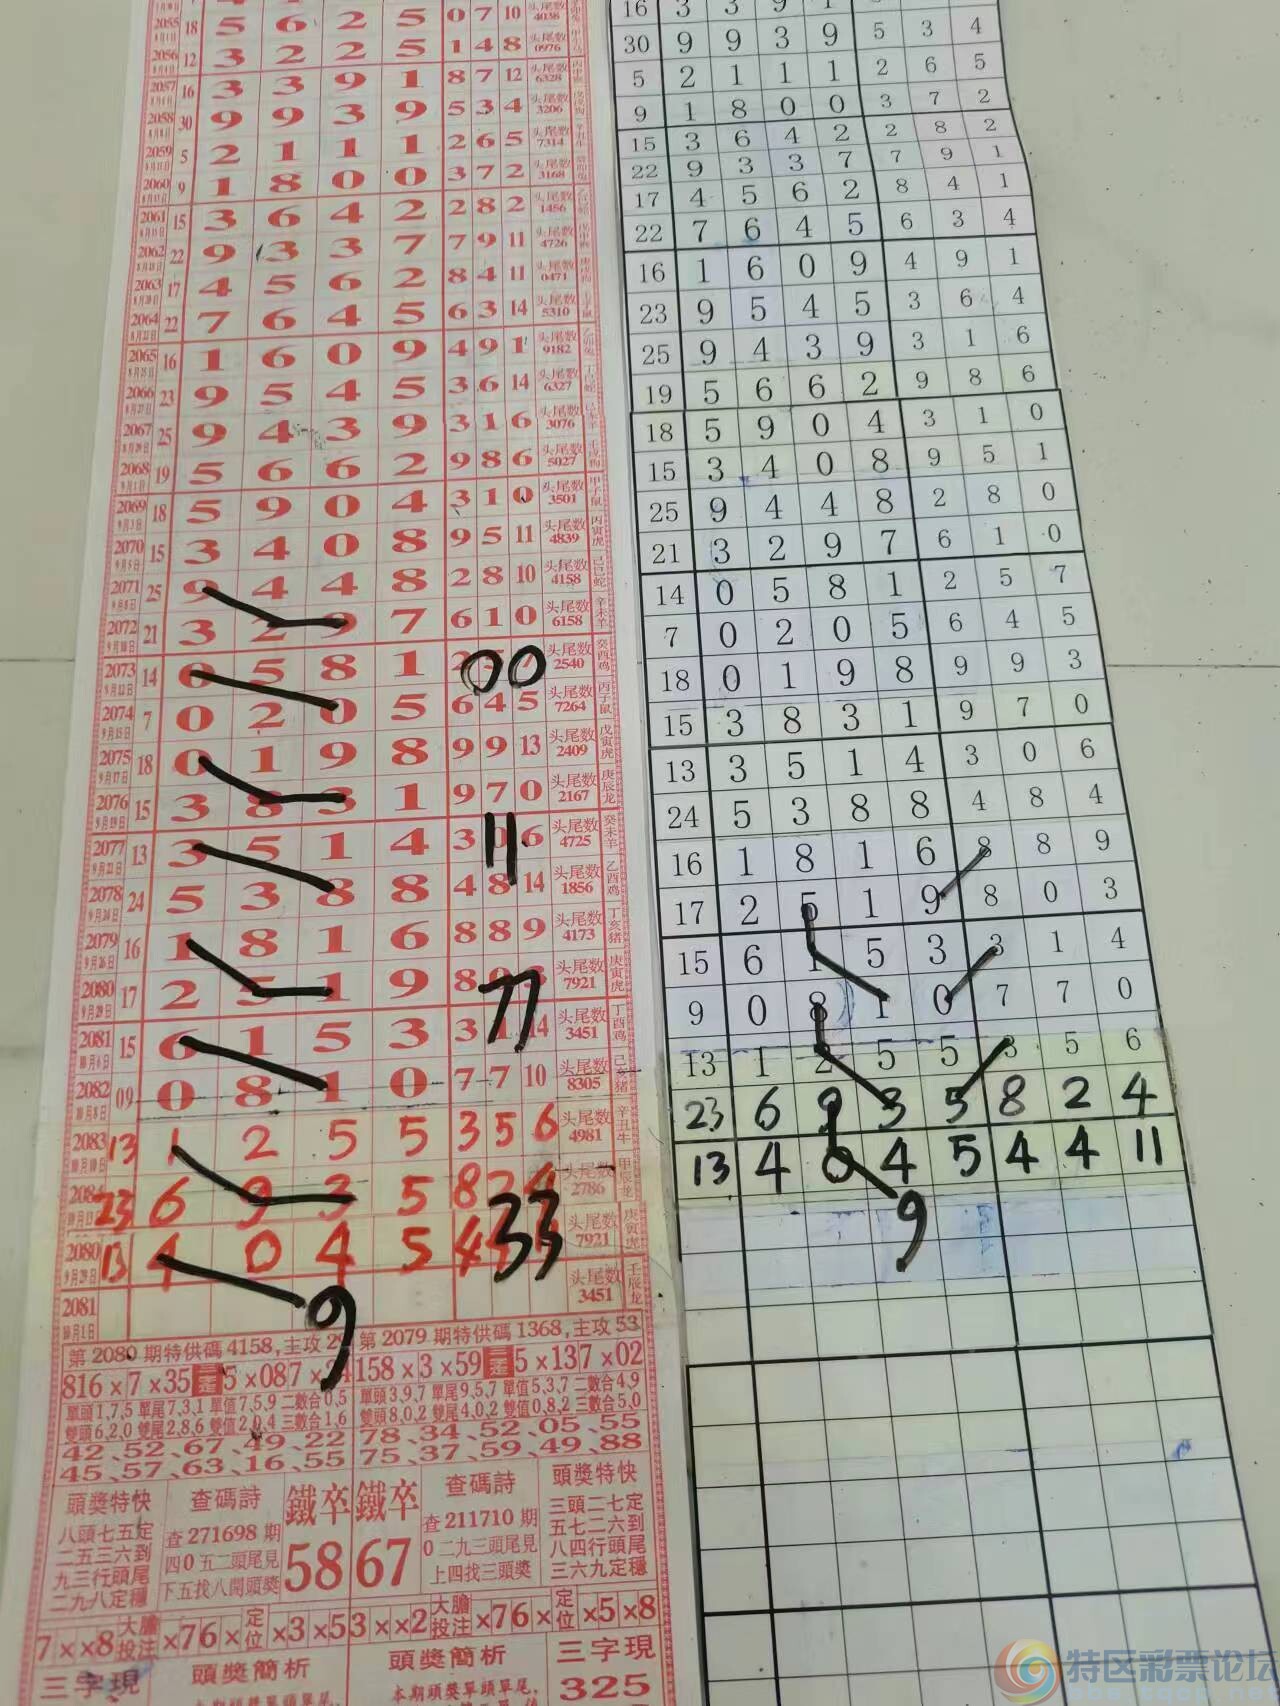 2055 18 5 6 2 5 0 7 10 头尾数 4038
2056 12 3 2 2 5 1 4 8 头尾数 0976
2057 16 3 3 9 1 8 7 12 头尾数 6328
2058 30 9 9 3 9 5 3 4 头尾数 3206
2059 5 2 1 1 1 2 6 5 头尾数 7314
2060 9 1 8 0 0 3 7 2 头尾数 3168
2061 15 3 6 4 2 2 8 2 头尾数 1456
2062 22 9 3 3 7 7 9 11 头尾数 4726
2063 17 4 5 6 2 8 4 11 头尾数 0471
2064 22 7 6 4 5 6 3 14 头尾数 5310
2065 16 1 6 0 9 4 9 1 头尾数 9182
2066 23 9 5 4 5 3 6 14 头尾数 6327
2067 25 9 4 3 9 3 1 6 头尾数 3076
2068 19 5 6 6 2 9 8 6 头尾数 5027
2069 18 5 9 0 4 3 1 0 头尾数 3501
2070 15 3 4 0 8 9 5 11 头尾数 4839
2071 25 9 4 4 8 2 8 10 头尾数 4158
2072 21 3 2 9 7 6 1 0 头尾数 6158
2073 14 0 5 8 1 00 头尾数 2540
2074 7 0 2 0 5 6 4 5 头尾数 7264
2075 18 0 1 9 8 9 9 13 头尾数 2409
2076 15 3 8 3 1 9 7 0 头尾数 2167
2077 13 3 5 1 4 3 0 6 11 头尾数 4725
2078 24 5 3 8 8 4 8 14 头尾数 1856
2079 16 1 8 1 6 8 8 9 头尾数 4173
2080 17 2 5 1 9 8 77 头尾数 7921
2081 15 6 1 5 3 3 14 头尾数 3451
2082 09 0 8 1 0 7 7 10 头尾数 8305
2083 13 1 2 5 5 3 5 6 头尾数 4981
2084 23 6 9 3 5 8 2 4 头尾数 2786
2080 13 4 0 4 5 4 33 头尾数 7921
2081 9 头尾数 3451
第2080期特供碼4158,主攻29
第2079期特供碼1368,主攻53
816×7×35 5×087×
158×3×59 5×137×02
單頭1,7,5 單尾7,3,1 單值7,5,9 二數合0,5
雙頭6,2,0 雙尾2,8,6 雙值2,0,4 三數合1,6
單頭3,9,7 單尾9,5,7 單值5,3,7 二數合4,9
雙頭8,0,2 雙尾4,0,2 雙值0,8,2 三數合5,0
42、52、67、49、22
45、57、63、16、55
78、34、52、05、55
75、37、59、49、88
頭獎特快
八頭七五定
二五三六到
九三行頭尾
二九八定穩
查碼詩
查271698期
四0五二頭尾見
下五找八開頭獎
鐵卒
58
鐵卒
67
查碼詩
查211710期
0二九三頭尾見
上四找三頭獎
頭獎特快
三頭二七定
五七二六到
八四行頭尾
三六九定穩
7××8 大膽投注 ×76× 定位 ×3×5
3××2 大膽投注 ×76× 定位 ×5×8
三字現
頭獎簡析
本期頭獎單頭雙尾,
頭獎簡析
本期頭獎單頭單尾,
三字現
325
16 3 3 9 1
30 9 9 3 9 5 3 4
5 2 1 1 1 2 6 5
9 1 8 0 0 3 7 2
15 3 6 4 2 2 8 2
22 9 3 3 7 7 9 1
17 4 5 6 2 8 4 1
22 7 6 4 5 6 3 4
16 1 6 0 9 4 9 1
23 9 5 4 5 3 6 4
25 9 4 3 9 3 1 6
19 5 6 6 2 9 8 6
18 5 9 0 4 3 1 0
15 3 4 0 8 9 5 1
25 9 4 4 8 2 8 0
21 3 2 9 7 6 1 0
14 0 5 8 1 2 5 7
7 0 2 0 5 6 4 5
18 0 1 9 8 9 9 3
15 3 8 3 1 9 7 0
13 3 5 1 4 3 0 6
24 5 3 8 8 4 8 4
16 1 8 1 6 8 8 9
17 2 5 1 9 8 0 3
15 6 1 5 3 3 1 4
9 0 8 1 0 7 7 0
13 1 2 5 5 3 5 6
23 6 9 3 5 8 2 4
13 4 0 4 5 4 4 11
9
特区彩票论坛